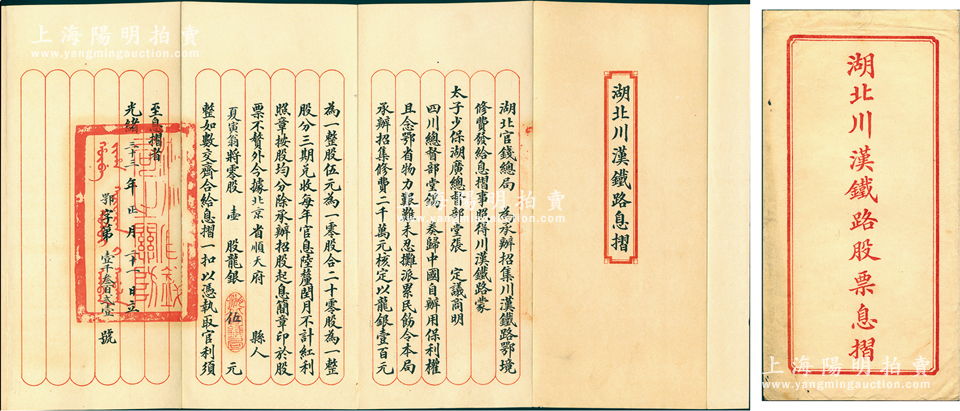 湖北川漢鐵路股票息摺
湖北川漢鐵路息摺
湖北官錢總局 為承辦招集川漢鐵路鄂境
修費發給息摺事照得川漢鐵路蒙
太子少保湖廣總督部堂張 定議商明
四川總督部堂錫 奏歸中國自辦用保利權
且念鄂省物力艱難未忍攤派累民飭令本局
承辦招集修費二千萬元核定以龍銀壹百元
為一整股伍元為一零股合二十零股為一整
股分三期兌收每年官息陸釐閏月不計紅利
照章按股均分除承辦招股起息簡章印於股
票不贅外今據北京省順天府 縣人
夏寅翁將零股 壹 股龍銀 伍 元
整如數交齊合給息摺一扣以憑執取官利須
至息摺者
光緒三十三年正月 日立
鄂字第 壹千叁百貳壹 號
上海陽明拍賣
www.yangmingauction.com
上海陽明拍賣
www.yangmingauction.com